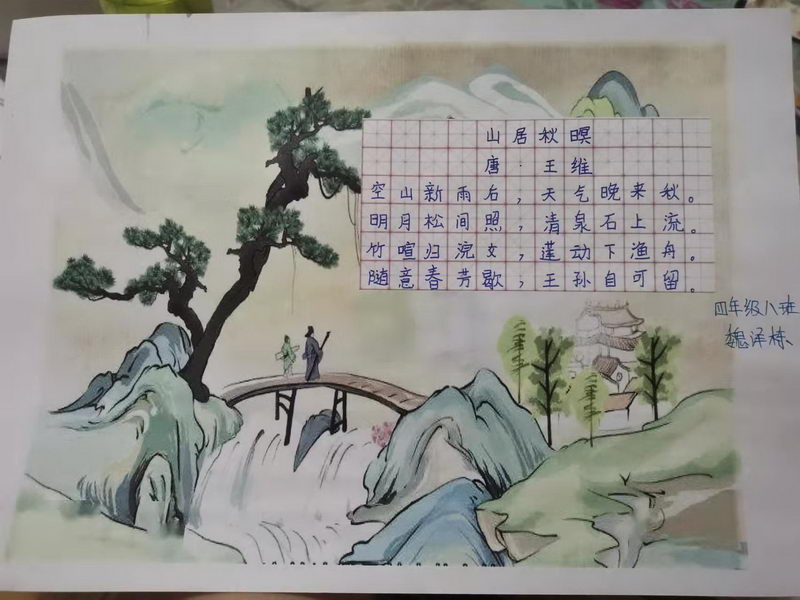 山居秋暝
唐·王维
空山新雨后，天气晚来秋。
明月松间照，清泉石上流。
竹喧归浣女，莲动下渔舟。
随意春芳歇，王孙自可留。
四年级八班
魏泽栋